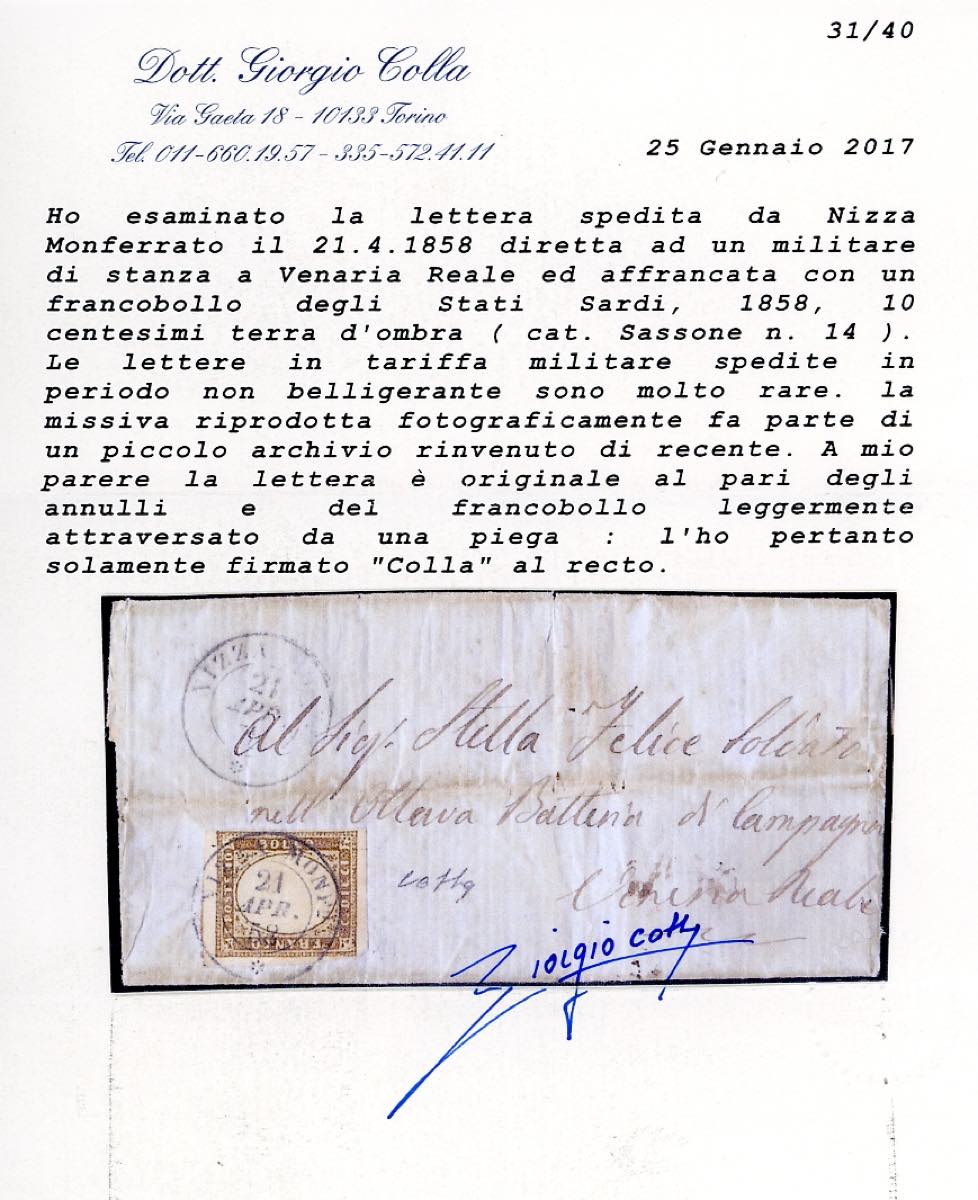 31/40
Dott. Giorgio Colla
Via Gaeta 18 - 10133 Torino
Tel. 011-660.19.57 - 335-572.41.11
25 Gennaio 2017
Ho esaminato la lettera spedita da Nizza
Monferrato il 21.4.1858 diretta ad un militare
di stanza a Venaria Reale ed affrancata con un
francobollo degli Stati Sardi, 1858, 10
centesimi terra d'ombra ( cat. Sassone n. 14 ).
Le lettere in tariffa militare spedite in
periodo non belligerante sono molto rare. la
missiva riprodotta fotograficamente fa parte di
un piccolo archivio rinvenuto di recente. A mio
parere la lettera è originale al pari degli
annulli e del francobollo leggermente
attraversato da una piega : l'ho pertanto
solamente firmato "Colla" al recto.
NIZZA
21
APR.
Al Sig. Stella Felice Soldato
nell'Ottava Batteria di Campagna
Reale
MONF
21
APR.
Colla
Giorgio Colla